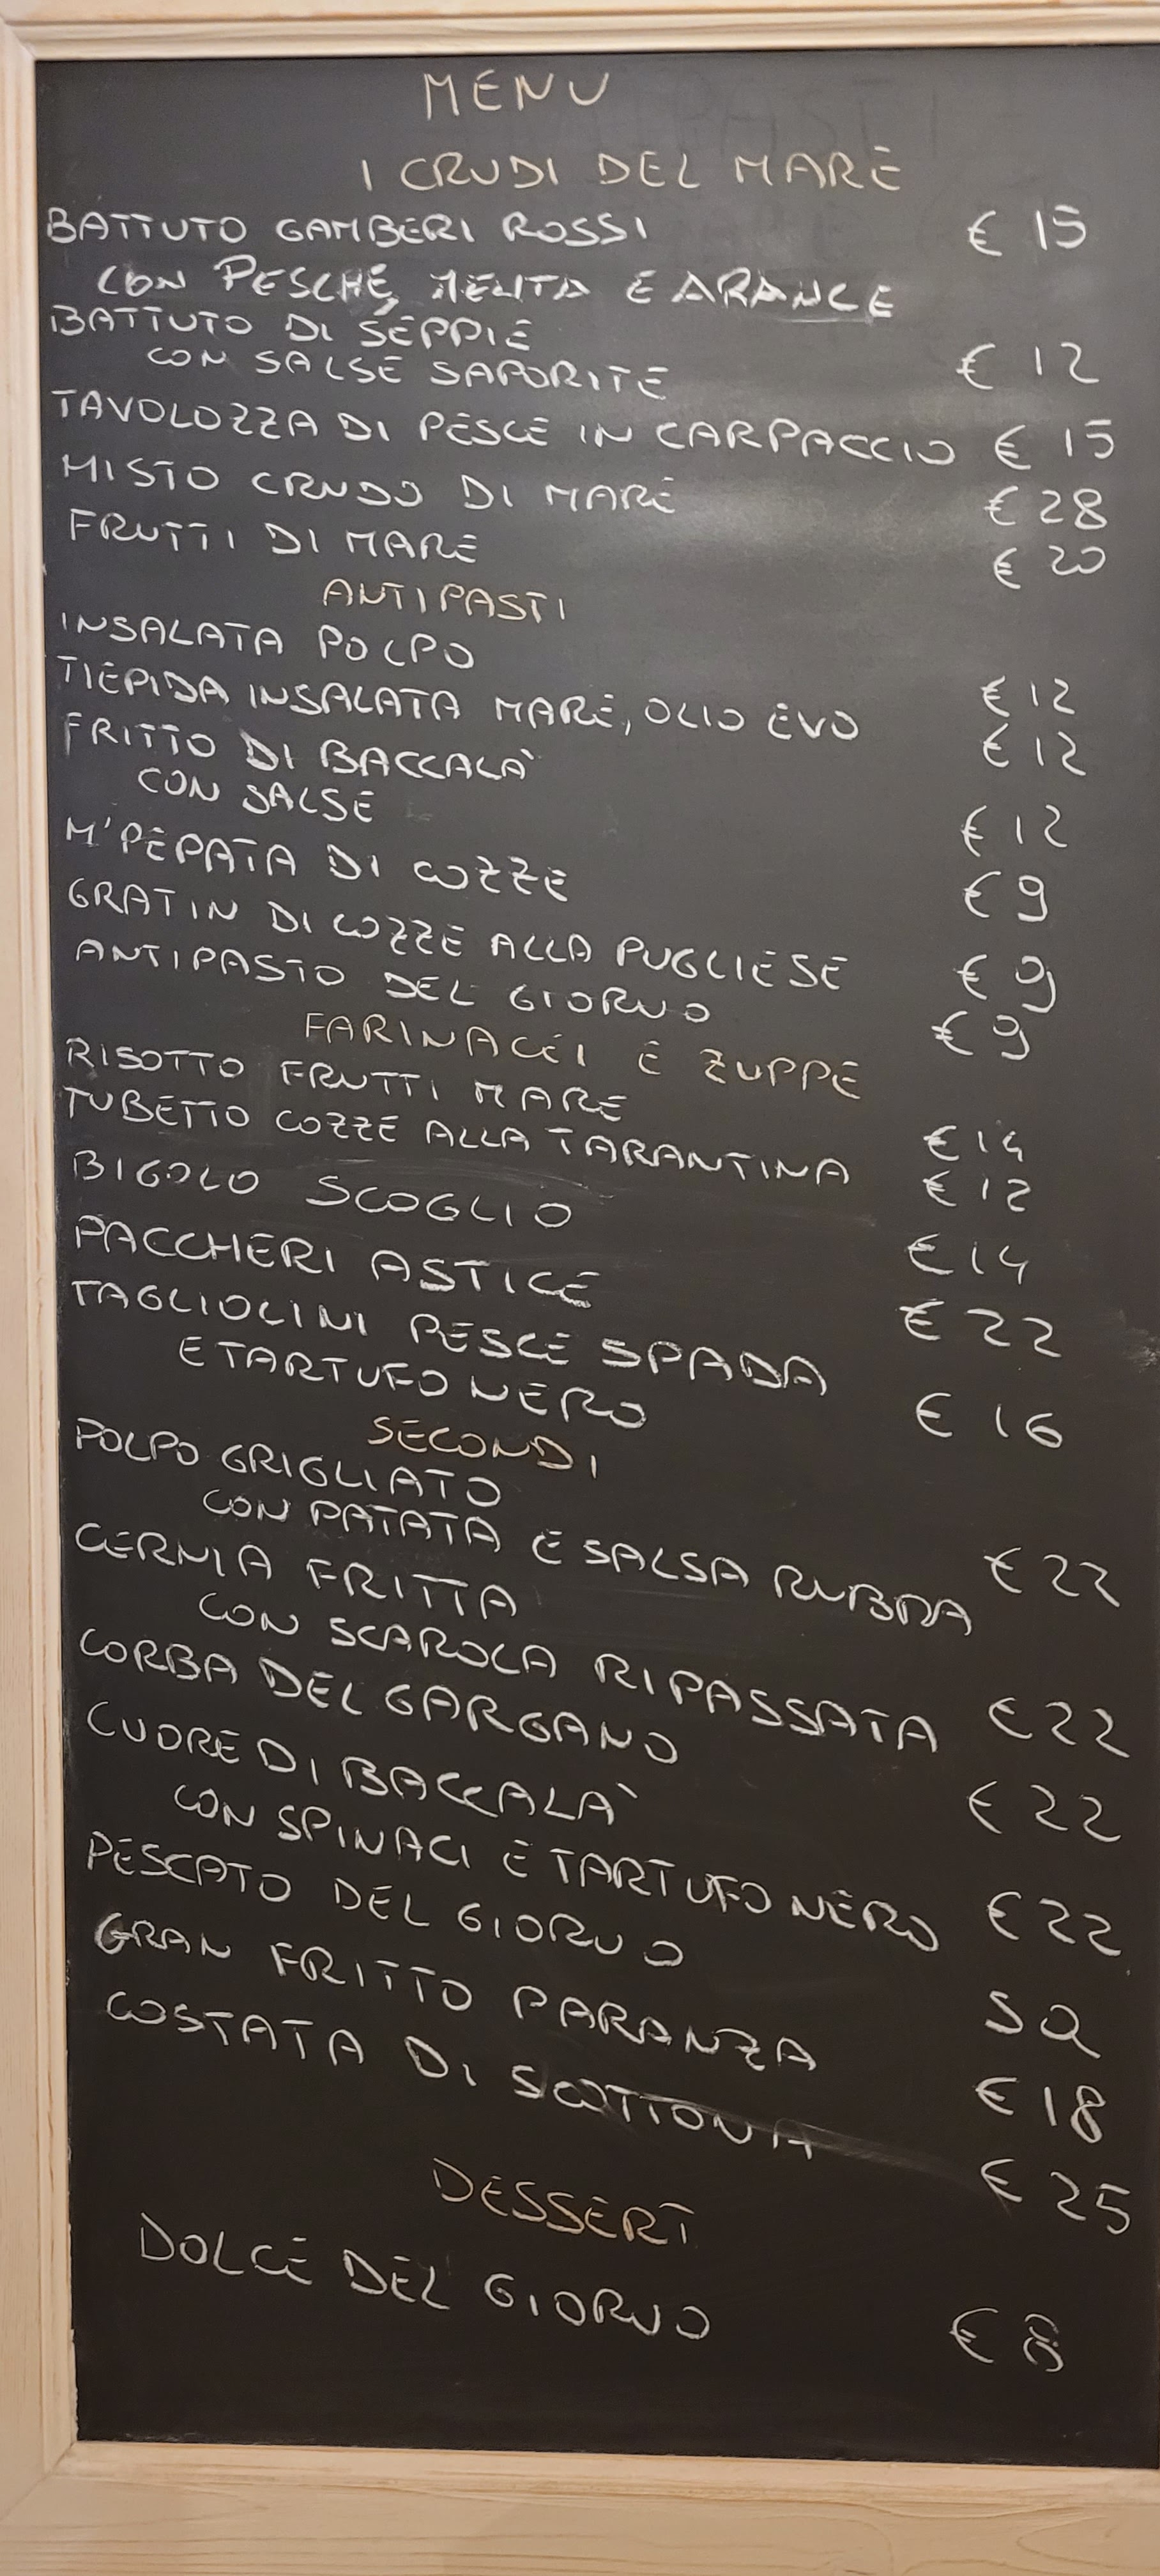 MENU
I CRUDI DEL MARE
BATTUTO GAMBERI ROSSI € 15
CON PESCHE, MENTA E ARANCE
BATTUTO DI SEPPIE
CON SALSE SAPORITE € 12
TAVOLOZZA DI PESCE IN CARPACCIO € 15
MISTO CRUDO DI MARE € 28
FRUTTI DI MARE € 20
ANTIPASTI
INSALATA POLPO € 12
TIEPIDA INSALATA MARE, OLIO EVO € 12
FRITTO DI BACCALA'
CON SALSE € 12
M'PEPATA DI COZZE € 9
GRATIN DI COZZE ALLA PUGLIESE € 9
ANTIPASTO DEL GIORNO € 9
FARINACEI E ZUPPE
RISOTTO FRUTTI MARE € 14
TUBETTO COZZE ALLA TARANTINA € 12
BIGOLO SCOGLIO € 14
PACCHERI ASTICE € 22
TAGLIOLINI PESCE SPADA
E TARTUFO NERO € 16
SECONDI
POLPO GRIGLIATO
CON PATATA E SALSA RUBRA € 22
CERNIA FRITTA
CON SCAROLA RIPASSATA € 22
CORBA DEL GARGANO € 22
CUORE DI BACCALA'
CON SPINACI E TARTUFO NERO € 22
PESCATO DEL GIORNO SQ
GRAN FRITTO PARANZA € 18
COSTATA DI SCOTTONA € 25
DESSERT
DOLCE DEL GIORNO € 8